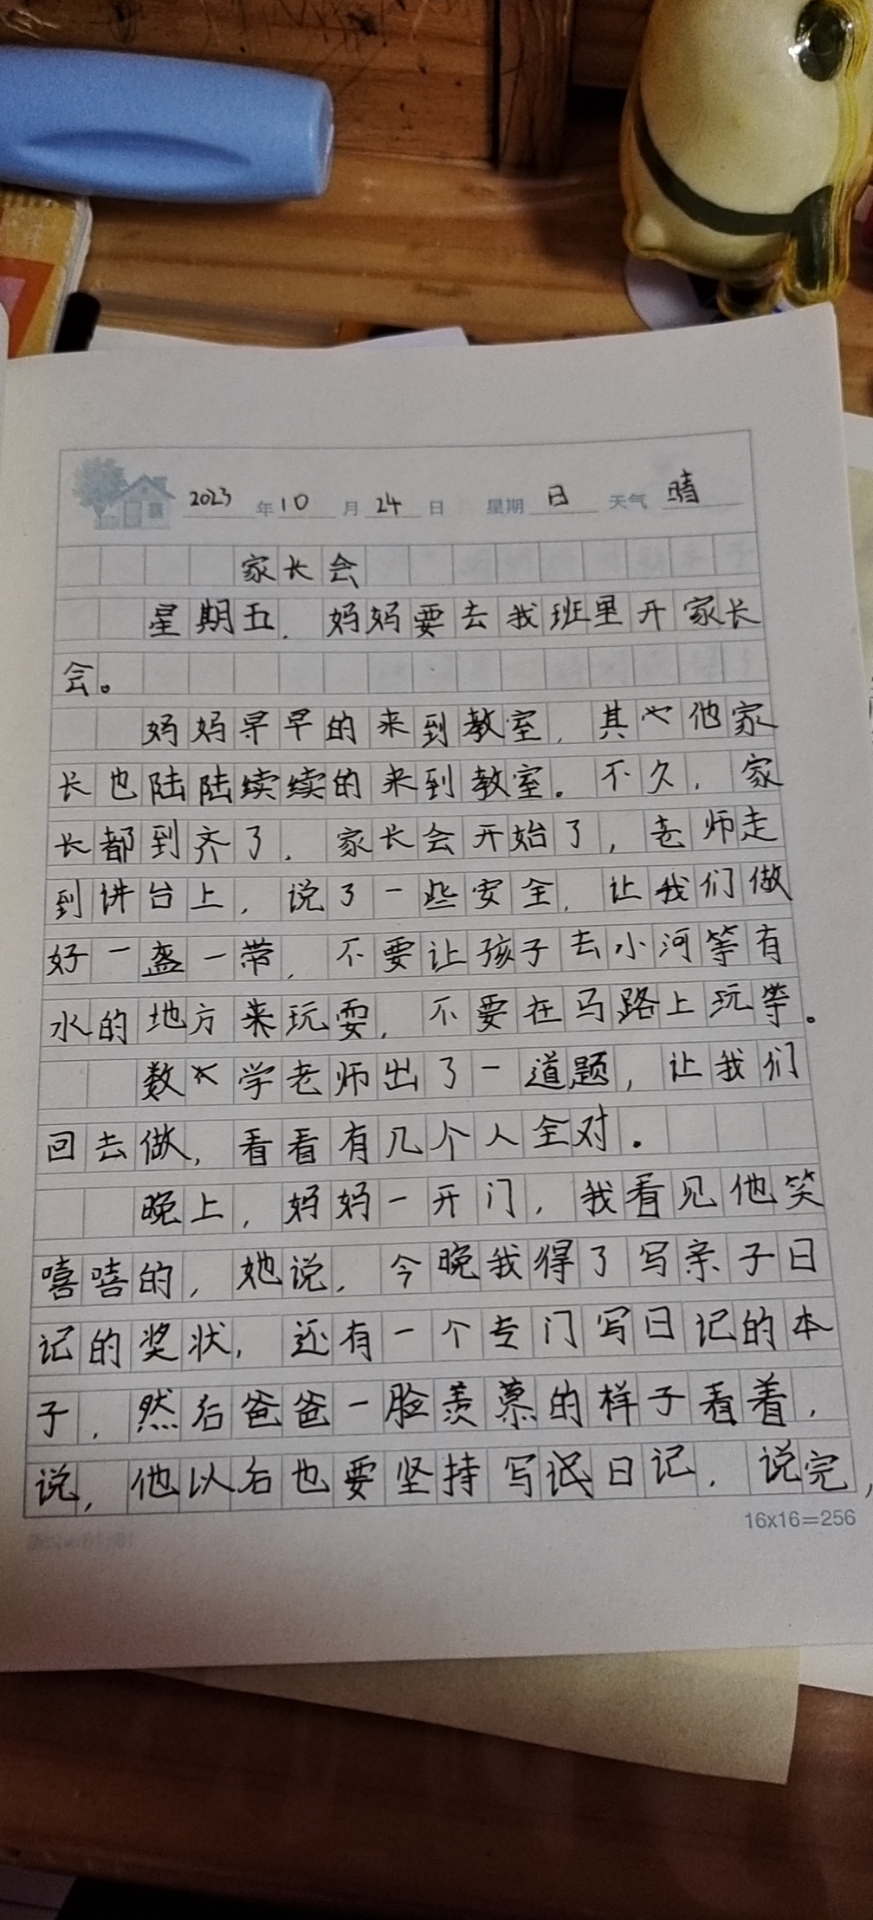 2023 年 10 月 24 日 星期 日 天气 晴
家长会
星期五，妈妈要去我班里开家长
会。
妈妈早早的来到教室，其他家
长也陆陆续续的来到教室。不久，家
长都到齐了，家长会开始了，老师走
到讲台上，说了一些安全，让我们做
好一盔一带，不要让孩子去小河等有
水的地方来玩耍，不要在马路上玩等。
数学老师出了一道题，让我们
回去做，看看有几个人全对。
晚上，妈妈一开门，我看见他笑
嘻嘻的，她说，今晚我得了写亲子日
记的奖状，还有一个专门写日记的本
子，然后爸爸一脸羡慕的样子看着，
说，他以后也要坚持写日记，说完，
16x16=256